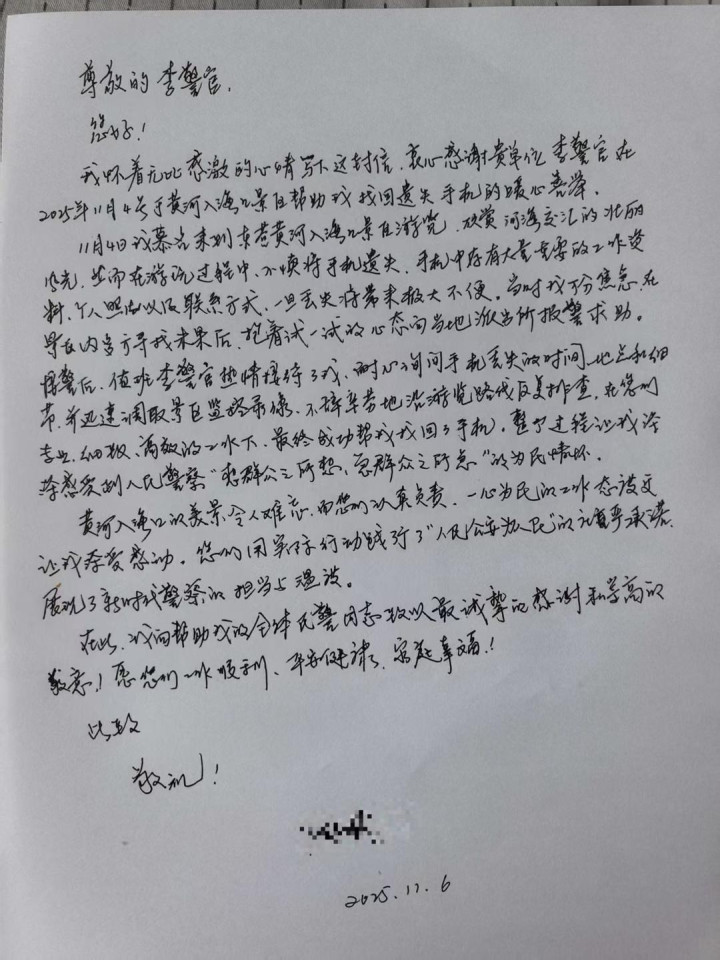 尊敬的李警官，
您好！
我怀着无比感激的心情写下这封信，衷心感谢贵单位李警官在
2025年11月4号于黄河入海口景区帮助我找回遗失手机的暖心善举。
11月4日我慕名来到东营黄河入海口景区游览，欣赏河海交汇的壮丽
风光，然而在游玩过程中，不慎将手机遗失，手机中存有大量重要的工作资
料、个人照片以及联系方式，一旦丢失将带来极大不便。当时我万分焦急，在
景区内多方寻找未果后，抱着试一试的心态向当地派出所报警求助。
接警后，值班李警官热情接待了我，耐心询问手机丢失的时间、地点和细
节，并迅速调取景区监控录像，不辞辛劳地沿游览路线反复排查，在您们
专业、细致、高效的工作下，最终成功帮我找回了手机，整个过程让我深
深感受到人民警察“想群众之所想，急群众之所急”的为民情怀。
黄河入海口的美景令人难忘，而您们认真负责、一心为民的工作态度更
让我深受感动。您们用实际行动践行了“人民公安为人民”的庄严承诺，
展现了新时代警察的担当与温度。
在此，我向帮助我的全体民警同志致以最诚挚的感谢和崇高的
敬意！愿您们工作顺利、平安健康、家庭幸福！
此致
敬礼！
2025.11.6